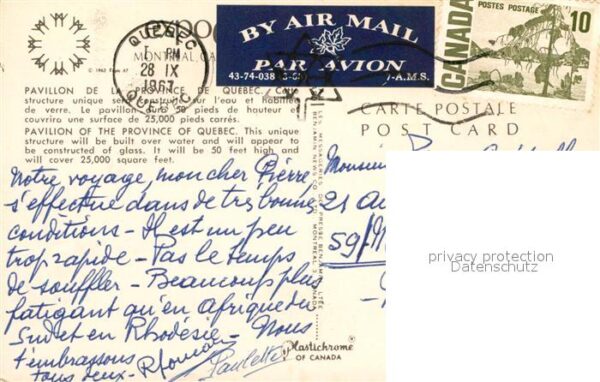 expo
MONTREAL, CA
© 1963 Expo 67
QUEBEC
PM
28 IX
1967
QUEBEC
BY AIR MAIL
PAR AVION
43-74-038
7-A.M.S.
POSTES POSTAGE
10
CANADA
PAVILLON DE LA PROVINCE DE QUÉBEC. Cette
structure unique sera construite sur l'eau et habillée
de verre. Le pavillon aura 50 pieds de hauteur et
couvrira une surface de 25,000 pieds carrés.
PAVILION OF THE PROVINCE OF QUEBEC. This unique
structure will be built over water and will appear
to be constructed of glass. It will be 50 feet high and
will cover 25,000 square feet.
CARTE POSTALE
POST CARD
Notre voyage, mon cher Pierre,
s'effectue dans de très bonnes
conditions - Il est un peu
trop rapide - Pas le temps
de souffler - Beaucoup plus
fatigant qu'en Afrique du
Sud et en Rhodésie - Nous
t'embrassons
tous deux -
Paulette
LES MESSAGERIES DE PRESSE BENJAMIN LTÉE
BENJAMIN NEWS CO MONTREAL CANADA
Plastichrome
OF CANADA
Monsieur
21
59/
privacy protection
Datenschutz